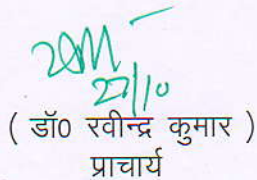 27/10
( डॉ0 रवीन्द्र कुमार )
प्राचार्य